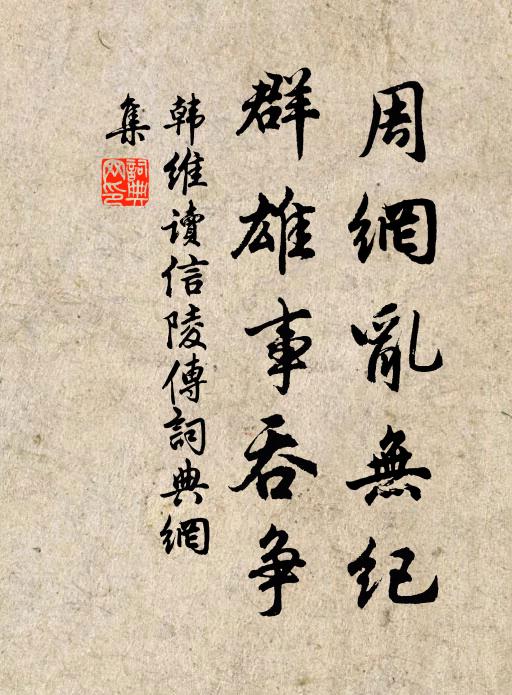 周網亂無紀
群雄事吞争
韩維讀信陵傳詞典網
集
詞典
网印